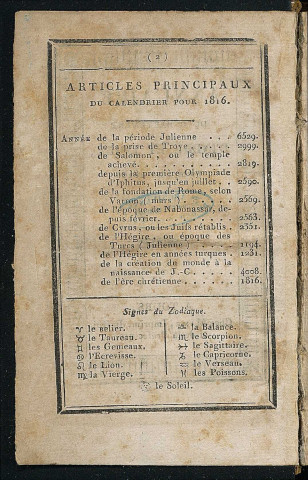 ( 2 )
ARTICLES PRINCIPAUX
DU CALENDRIER POUR 1816.
ANNÉE de la période Julienne . . . 6529.
de la prise de Troye. . . . . . 2999.
de Salomon, ou le temple
achevé. . . . . . . . . . . . 2819.
depuis la première Olympiade
d'Iphitus, jusqu'en juillet. . . 2590.
de la fondation de Rome, selon
Varron ( mars ) . . . . . . . 2569.
de l'époque de Nabonassar, de-
puis février. . . . . . . . . 2563.
de Cyrus, ou les Juifs rétablis. . 2351.
de l'Hégire, ou époque des
Turcs ( Julienne ) . . . . . 1194.
de l'Hégire en années turques. . 1231.
de la création du monde à la
naissance de J.-C. . . . . . 4008.
de l'ère chrétienne. . . . . . . 1816.
Signes du Zodiaque.
♈ le Belier.
♉ le Taureau.
♊ les Gemeaux.
♋ l'Ecrevisse.
♌ le Lion.
♍ la Vierge.
♎ la Balance.
♏ le Scorpion.
♐ le Sagittaire.
♑ le Capricorne.
♒ le Verseau.
♓ les Poissons.
le Soleil.